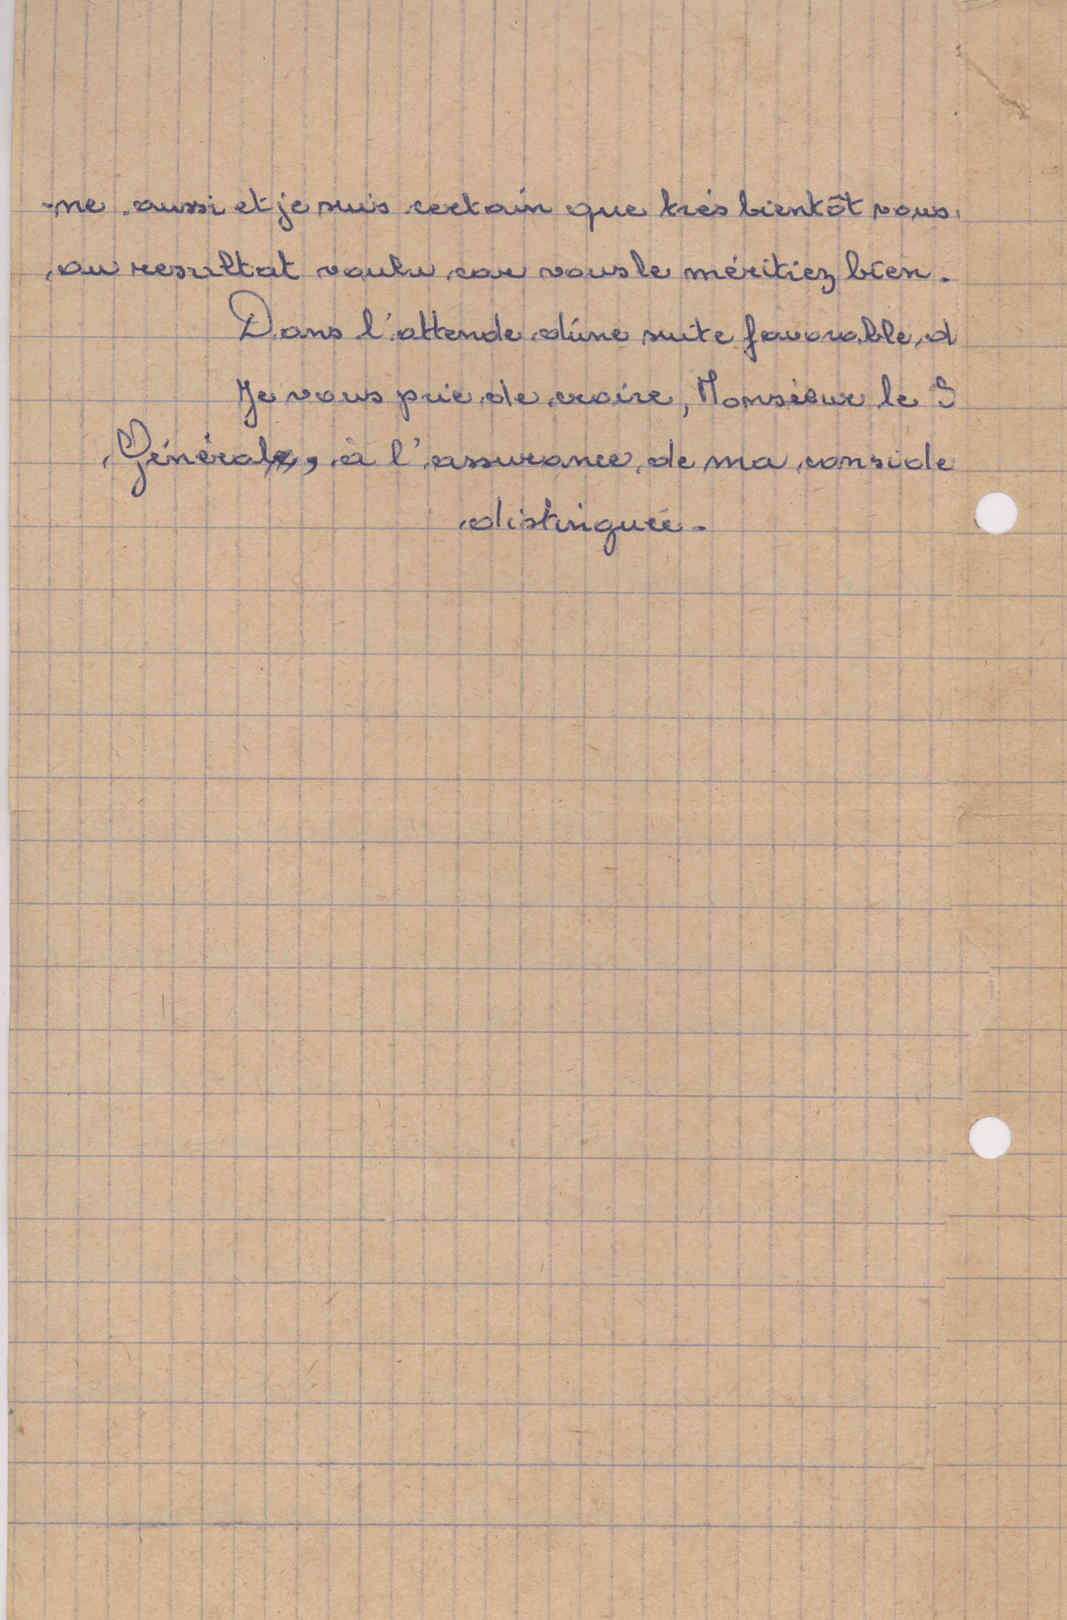 -ne aussi et je suis certain que très bientôt vous
au resultat voulu car vous le méritiez bien.
Dans l'attende d'une suite favorable, d
Je vous prie de croire, Monsieur le S
Général, à l'assurance de ma conside
distinguée.